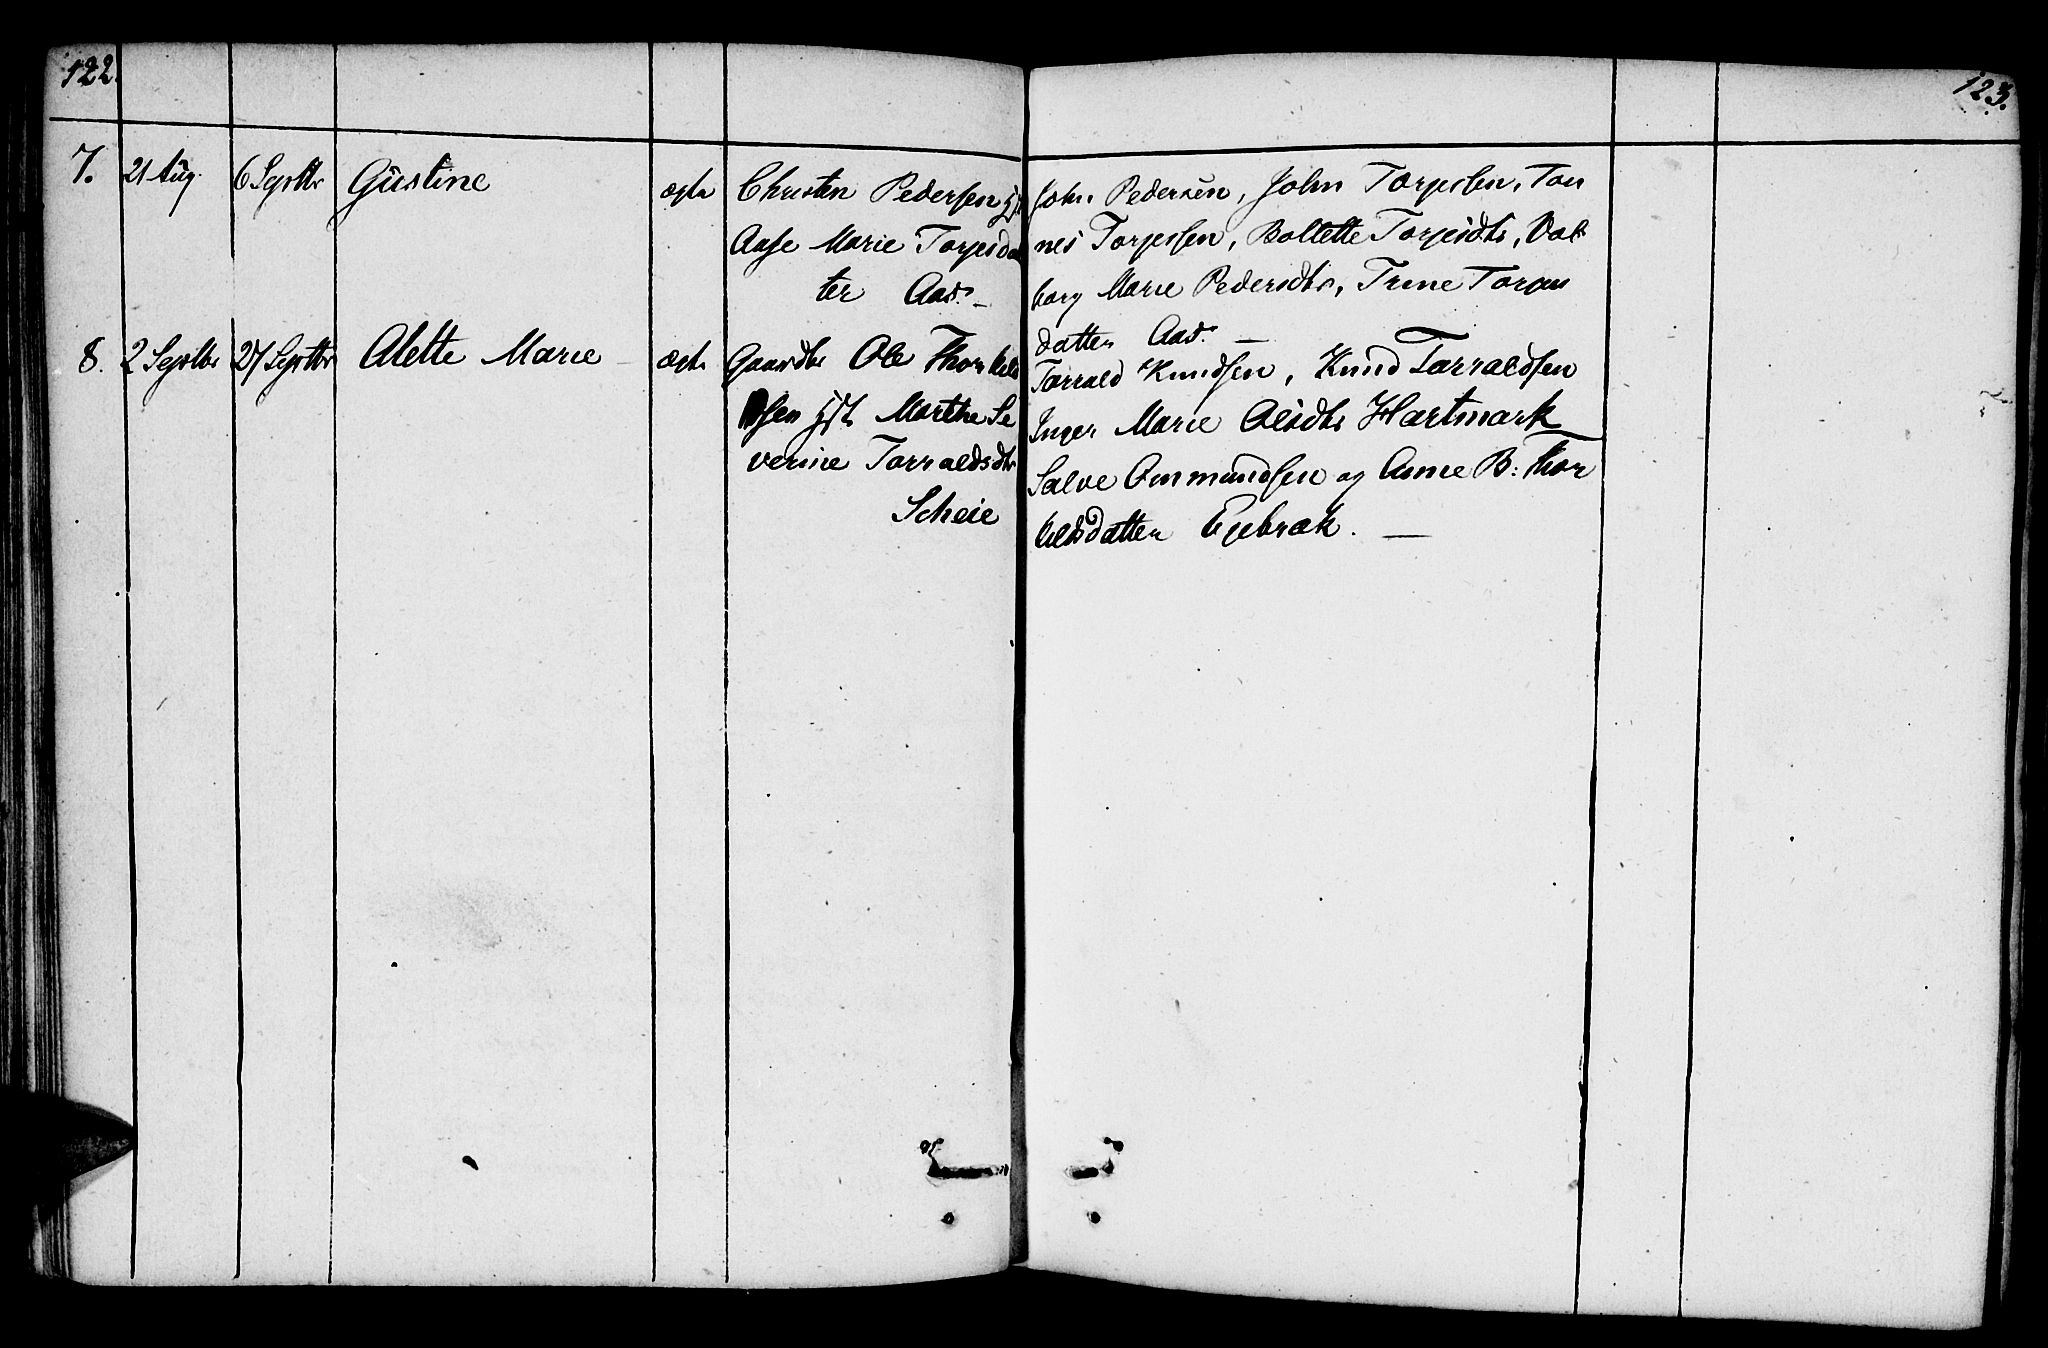 122.
7. 21 Aug. 6 Septbr Gustine ægte Christen Pedersen
Aase Marie Torjesdat
ter Aas. –
8. 2 Septbr 27 Septbr Alette Marie – ægte Gaardbr Ole Thorkels
sen Marthe Se
verine Tarraldsdtr
Scheie
123.
John Pedersen, John Torjessen, Tøn
nes Torjessen, Boltette Torjesdtr, Val
borg Marie Pedersdtr, Trine Torjes
datter Aas. –
Tarrald Knudsen, Knud Tarraldsen
Inger Marie Olsdtr Hartmark
Salve Ommundsen og Anne B: Thor
kelsdatter Egebræk. –